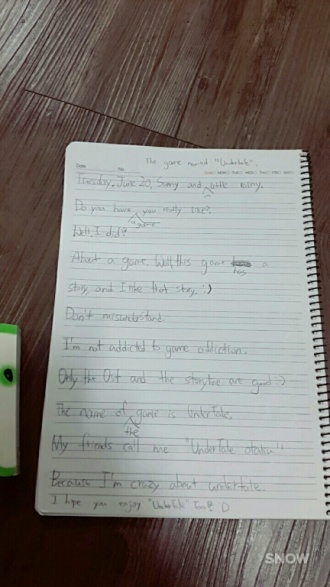 The game named "Undertale".
Tuesday, June 20, Sunny and a little rainy.
Do you have a game you really like?
Well, I did!!
About a game. Well, this game has a
story, and I like that story. :)
Don't misunderstand.
I'm not addicted to game addiction.
Only the Ost and the storyline are good :)
The name of the game is UnderTale.
My friends call me "UnderTale otaku"!
Because I'm crazy about undertale.
I hope you enjoy "UnderTale" : D
SNOW